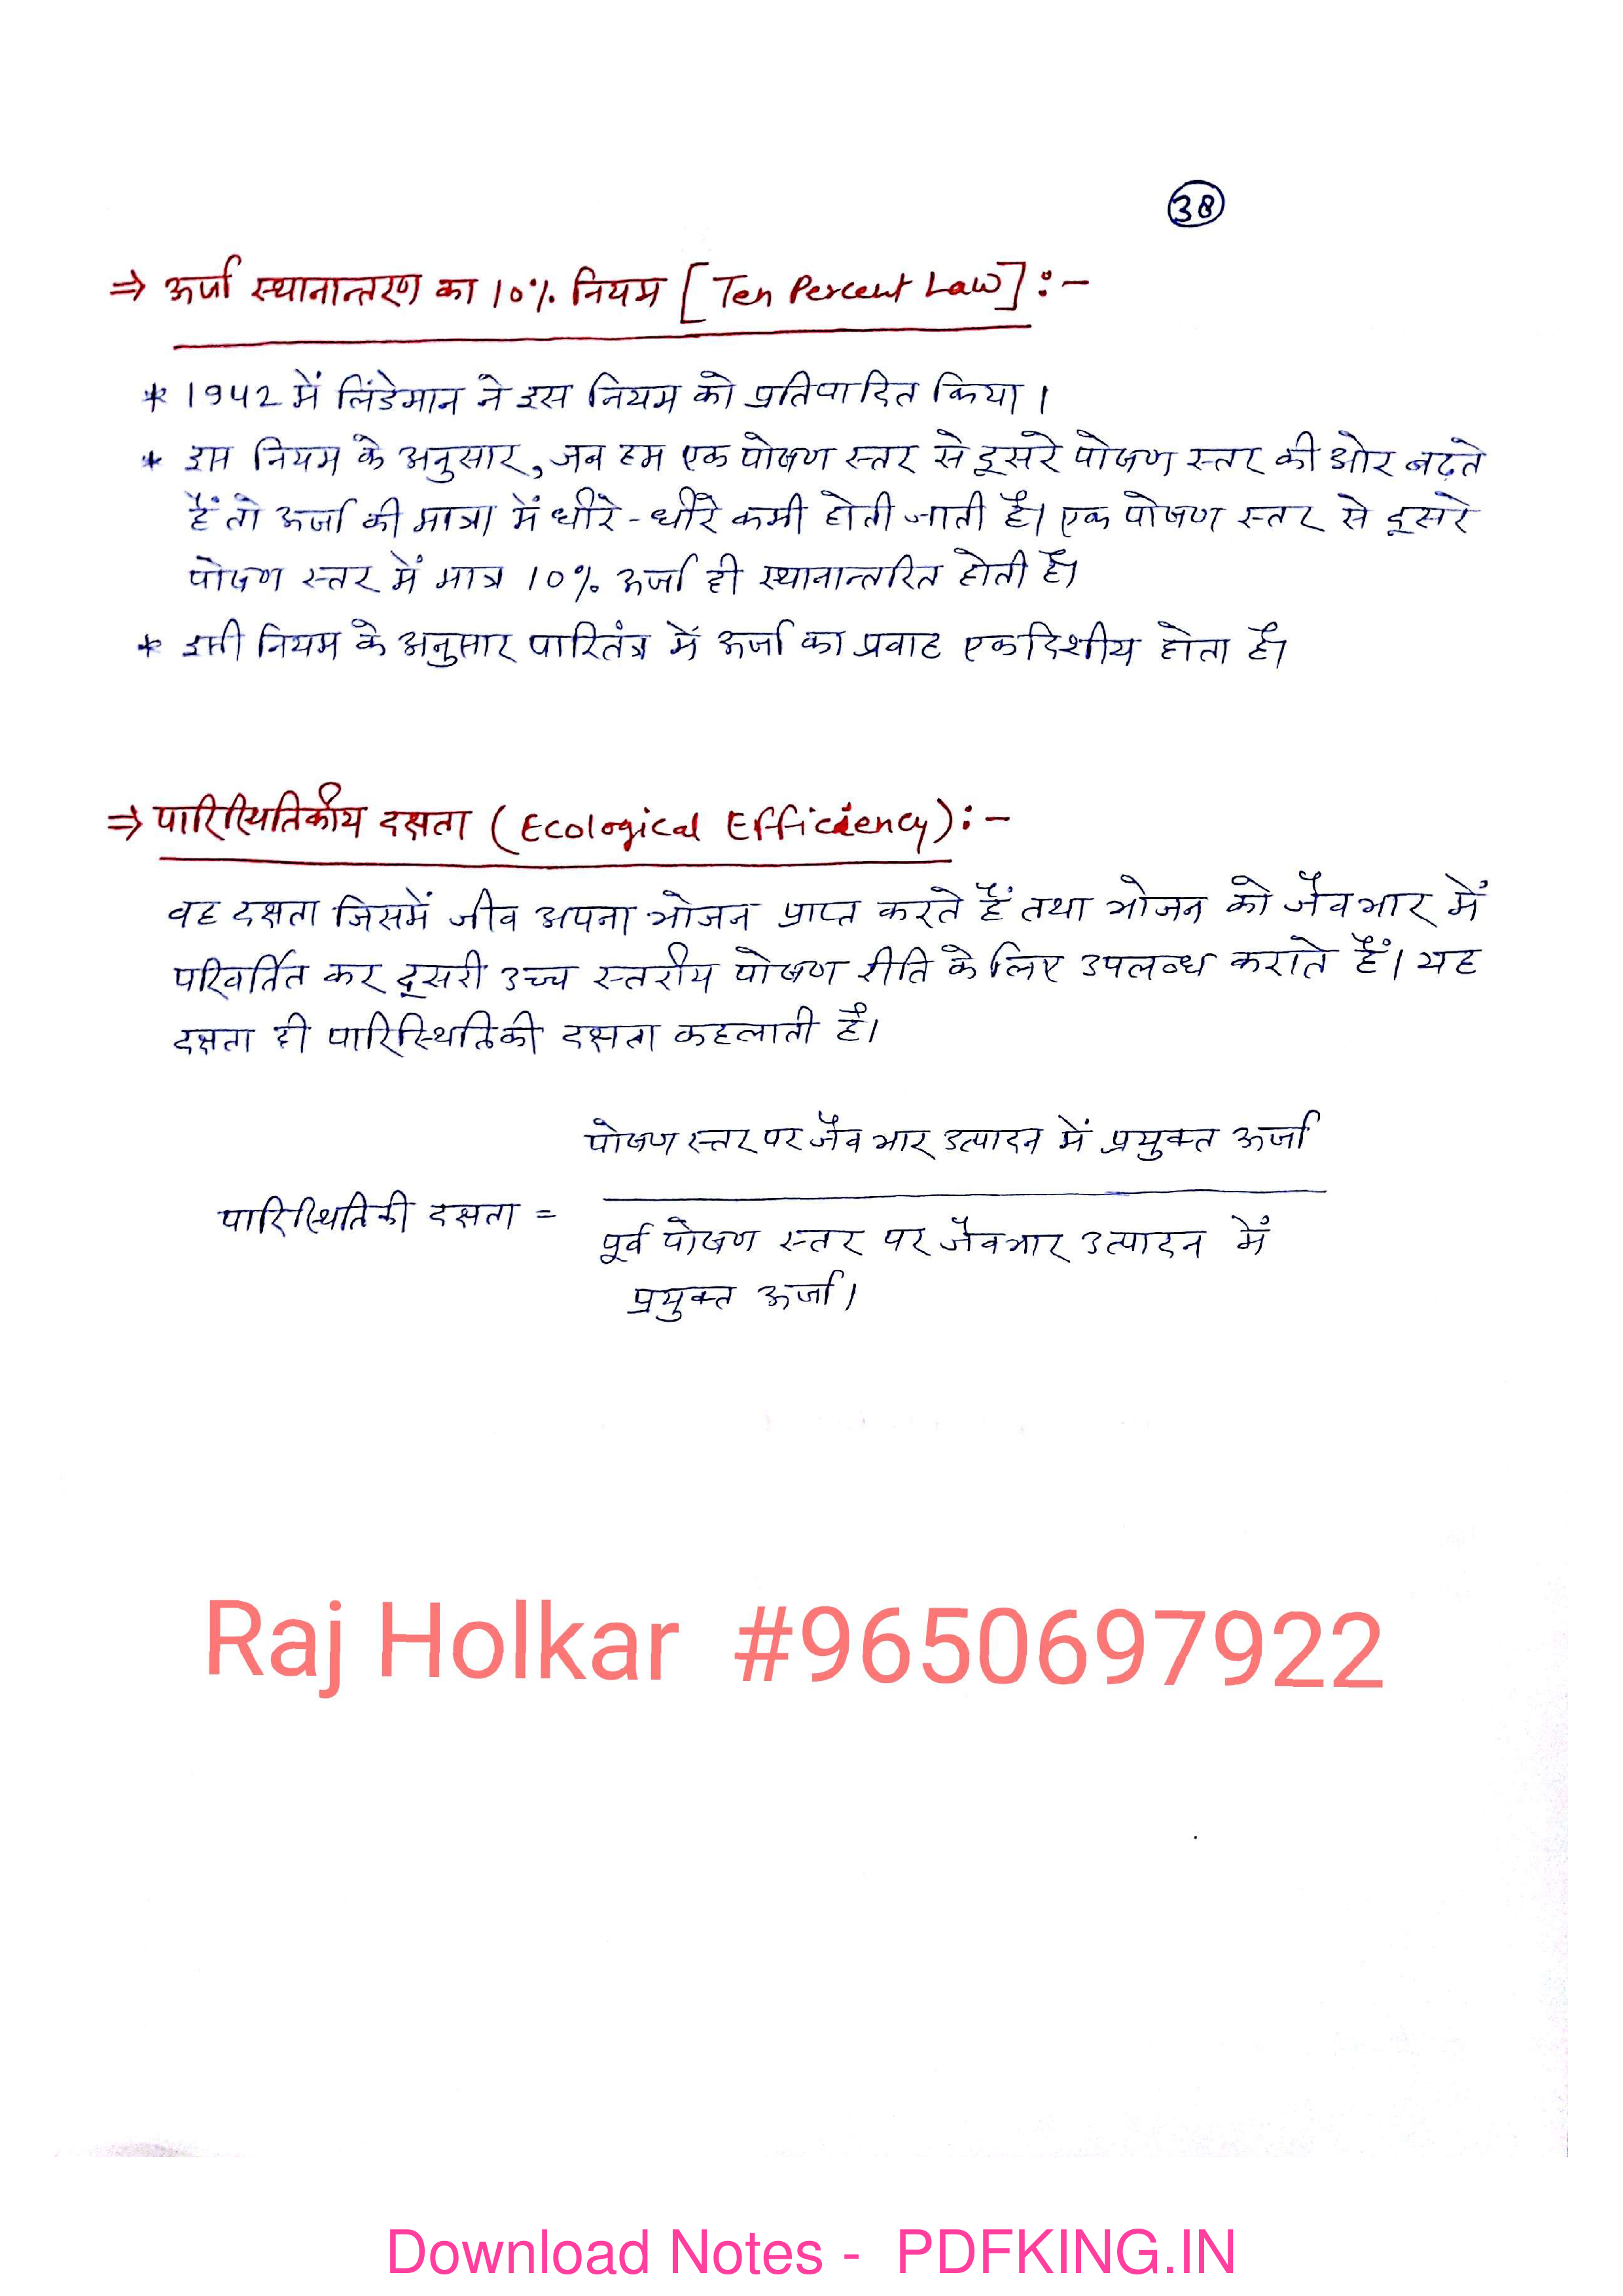 38
⇒ ऊर्जा स्थानान्तरण का 10% नियम [Ten Percent Law] :-
* 1942 में लिंडेमान ने इस नियम को प्रतिपादित किया।
* इस नियम के अनुसार, जब हम एक पोषण स्तर से दूसरे पोषण स्तर की ओर बढ़ते
हैं तो ऊर्जा की मात्रा में धीरे-धीरे कमी होती जाती है। एक पोषण स्तर से दूसरे
पोषण स्तर में मात्र 10% ऊर्जा ही स्थानान्तरित होती है।
* इसी नियम के अनुसार पारितंत्र में ऊर्जा का प्रवाह एकदिशीय होता है।
⇒ पारिस्थितिकीय दक्षता (Ecological Efficiency) :-
वह दक्षता जिसमें जीव अपना भोजन प्राप्त करते हैं तथा भोजन को जैवभार में
परिवर्तित कर दूसरी उच्च स्तरीय पोषण रीति के लिए उपलब्ध कराते हैं। यह
दक्षता ही पारिस्थितिकी दक्षता कहलाती है।
पोषण स्तर पर जैव भार उत्पादन में प्रयुक्त ऊर्जा
पारिस्थितिकी दक्षता =
पूर्व पोषण स्तर पर जैवभार उत्पादन में
प्रयुक्त ऊर्जा।
Raj Holkar #9650697922
Download Notes - PDFKING.IN